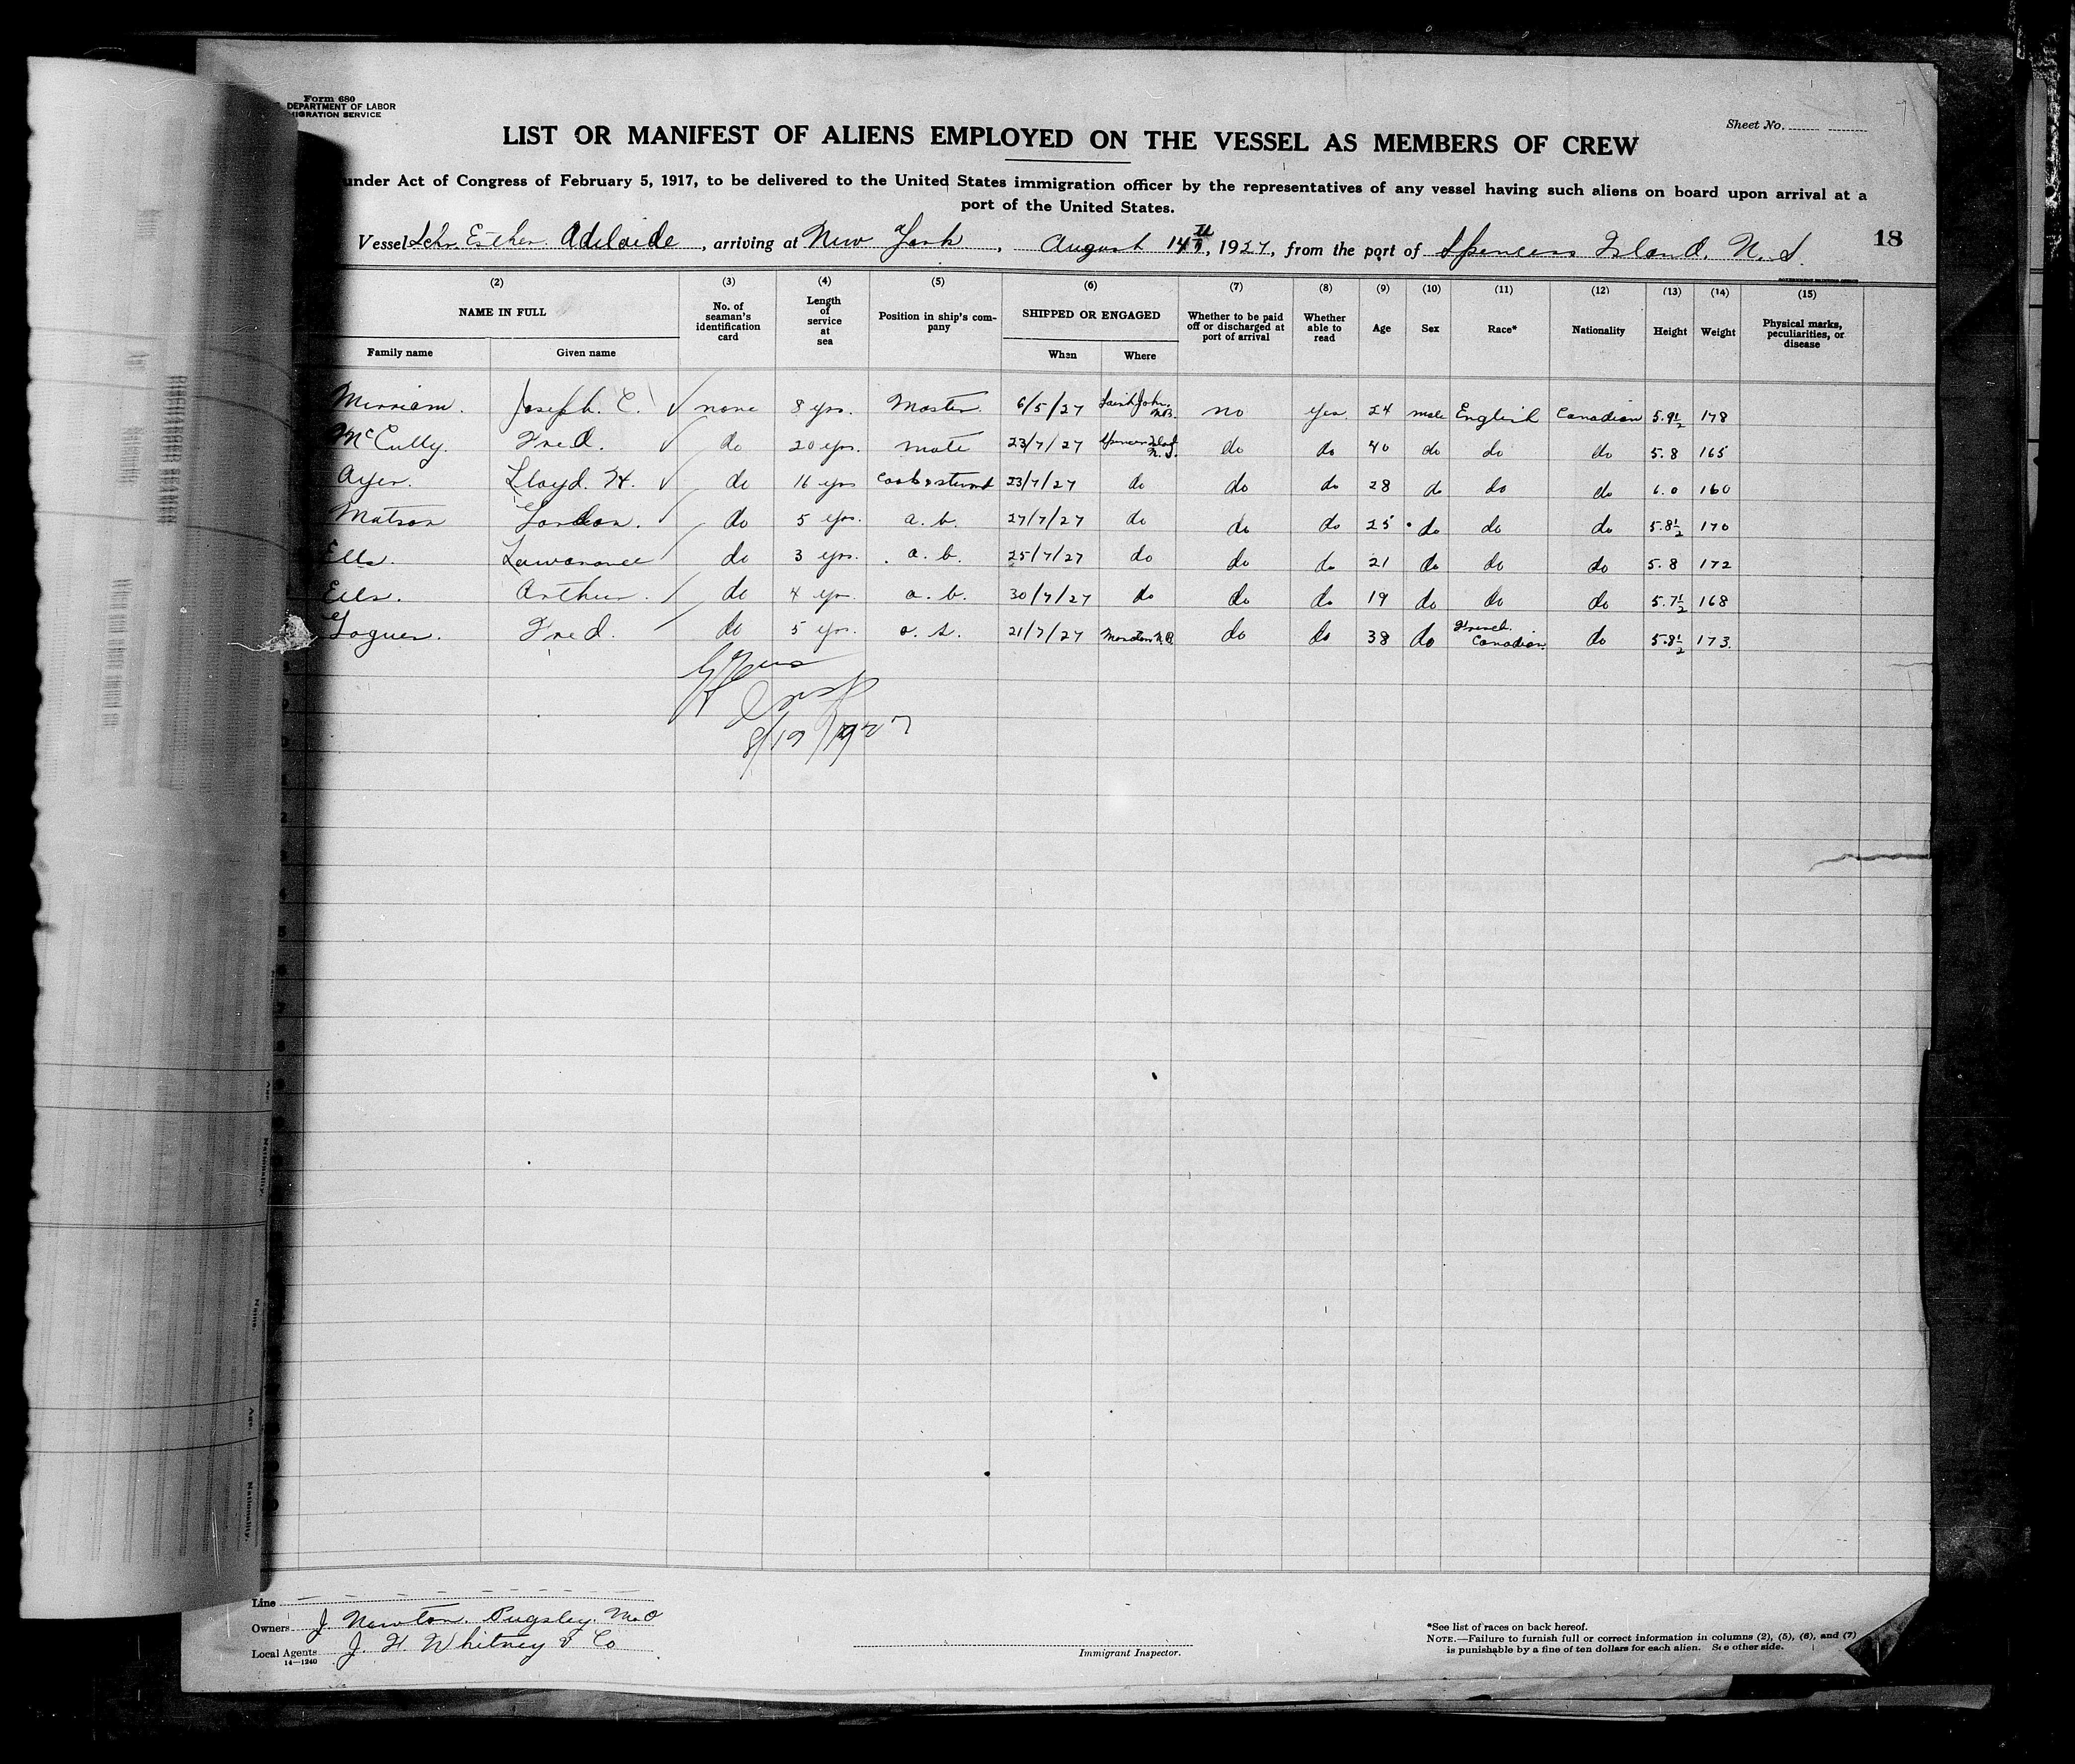 Form 680
DEPARTMENT OF LABOR
MIGRATION SERVICE
Sheet No.
LIST OR MANIFEST OF ALIENS EMPLOYED ON THE VESSEL AS MEMBERS OF CREW
under Act of Congress of February 5, 1917, to be delivered to the United States immigration officer by the representatives of any vessel having such aliens on board upon arrival at a
port of the United States.
Vessel Schr. Esther Adelaide, arriving at New York, August 14th, 1927, from the port of Spencers Island. N. S.
18
(2) (3) (4) (5) (6) (7) (8) (9) (10) (11) (12) (13) (14) (15)
NAME IN FULL
Family name Given name
No. of seaman's identification card
Length of service at sea
Position in ship's company
SHIPPED OR ENGAGED
When Where
Whether to be paid off or discharged at port of arrival
Whether able to read
Age Sex Race* Nationality Height Weight
Physical marks, peculiarities, or disease
Merriam. Joseph. C. none 8 yrs. Master. 6/5/27 Saint John, N.B. no yes 24 male English Canadian 5.9½ 178
McCully. Fred. do 20 yrs. mate 23/7/27 Spencer Island N.S. do do 40 do do do 5.8 165
Ayer. Lloyd. H. do 16 yrs cook & steward 23/7/27 do do do 28 do do do 6.0 160
Matson Gordon. do 5 yrs. a. b. 27/7/27 do do do 25 do do do 5.8½ 170
Ells. Lawarance do 3 yrs. a. b. 25/7/27 do do do 21 do do do 5.8 172
Ells. Arthur. do 4 yr a. b. 30/7/27 do do do 19 do do do 5.7½ 168
Goguen. Fred. do 5 yrs. o. s. 21/7/27 Moncton N.B. do do 38 do French Canadian. do 5.8½ 173.
Insp
8/19/1927
Line
Owners J. Newton. Pugsley. M.O
Local Agents J. H Whitney & Co
14—1240
Immigrant Inspector.
*See list of races on back hereof.
NOTE.—Failure to furnish full or correct information in columns (2), (5), (6), and (7)
is punishable by a fine of ten dollars for each alien. See other side.